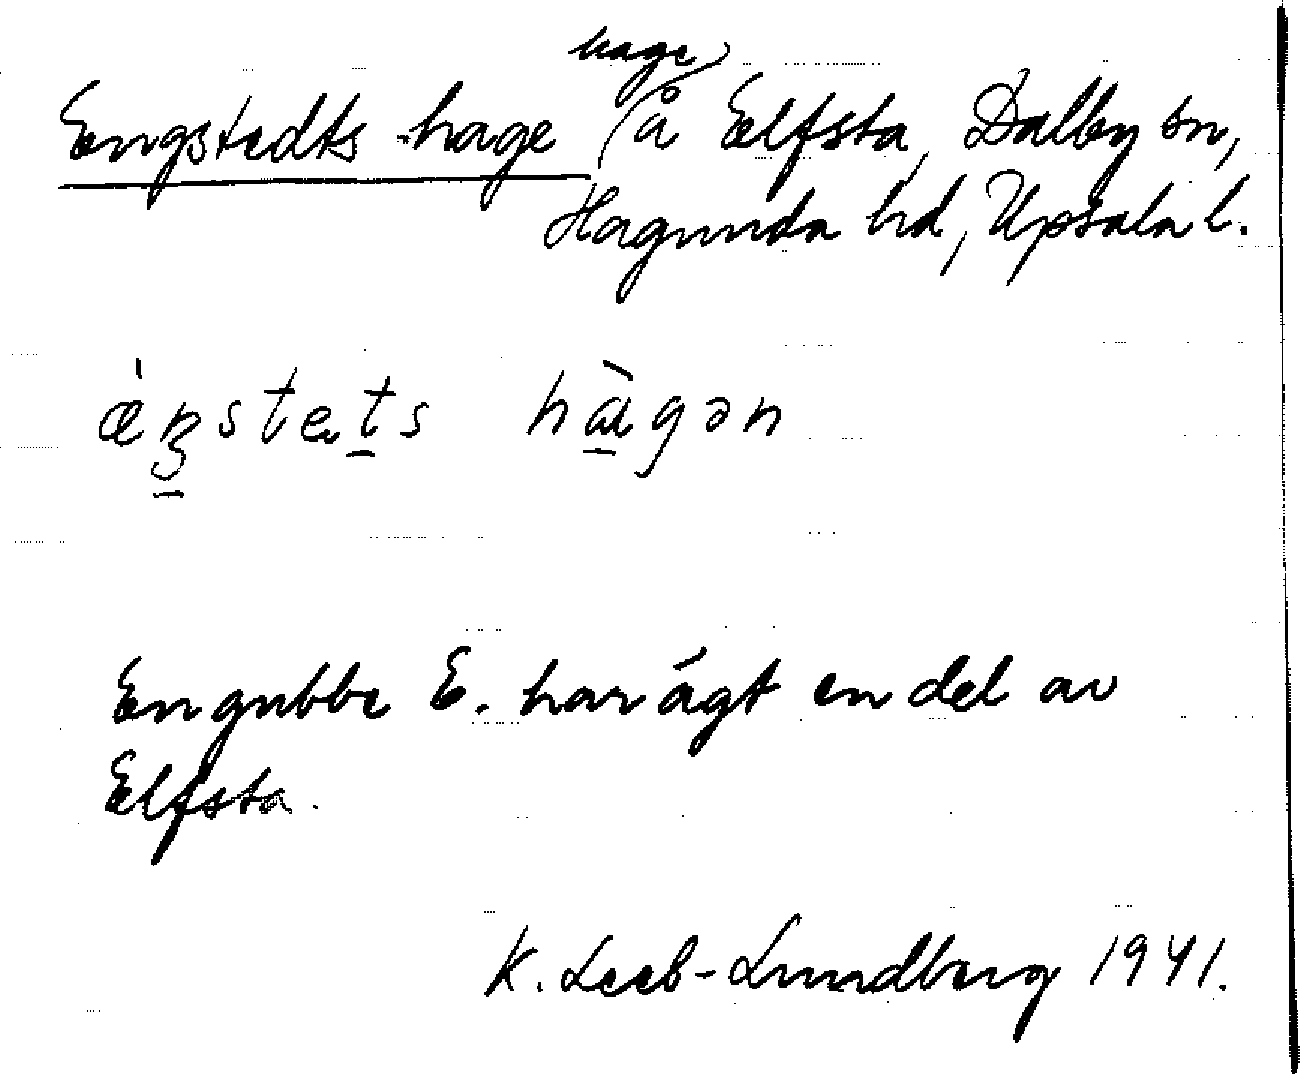 Engstedts hage hage å Elfsta, Dalby sn,
Hagunda hd, Upsala l.
ǽŋstets hàgən
En gubbe E. har ägt en del av
Elfsta.
K. Leeb-Lundberg 1941.